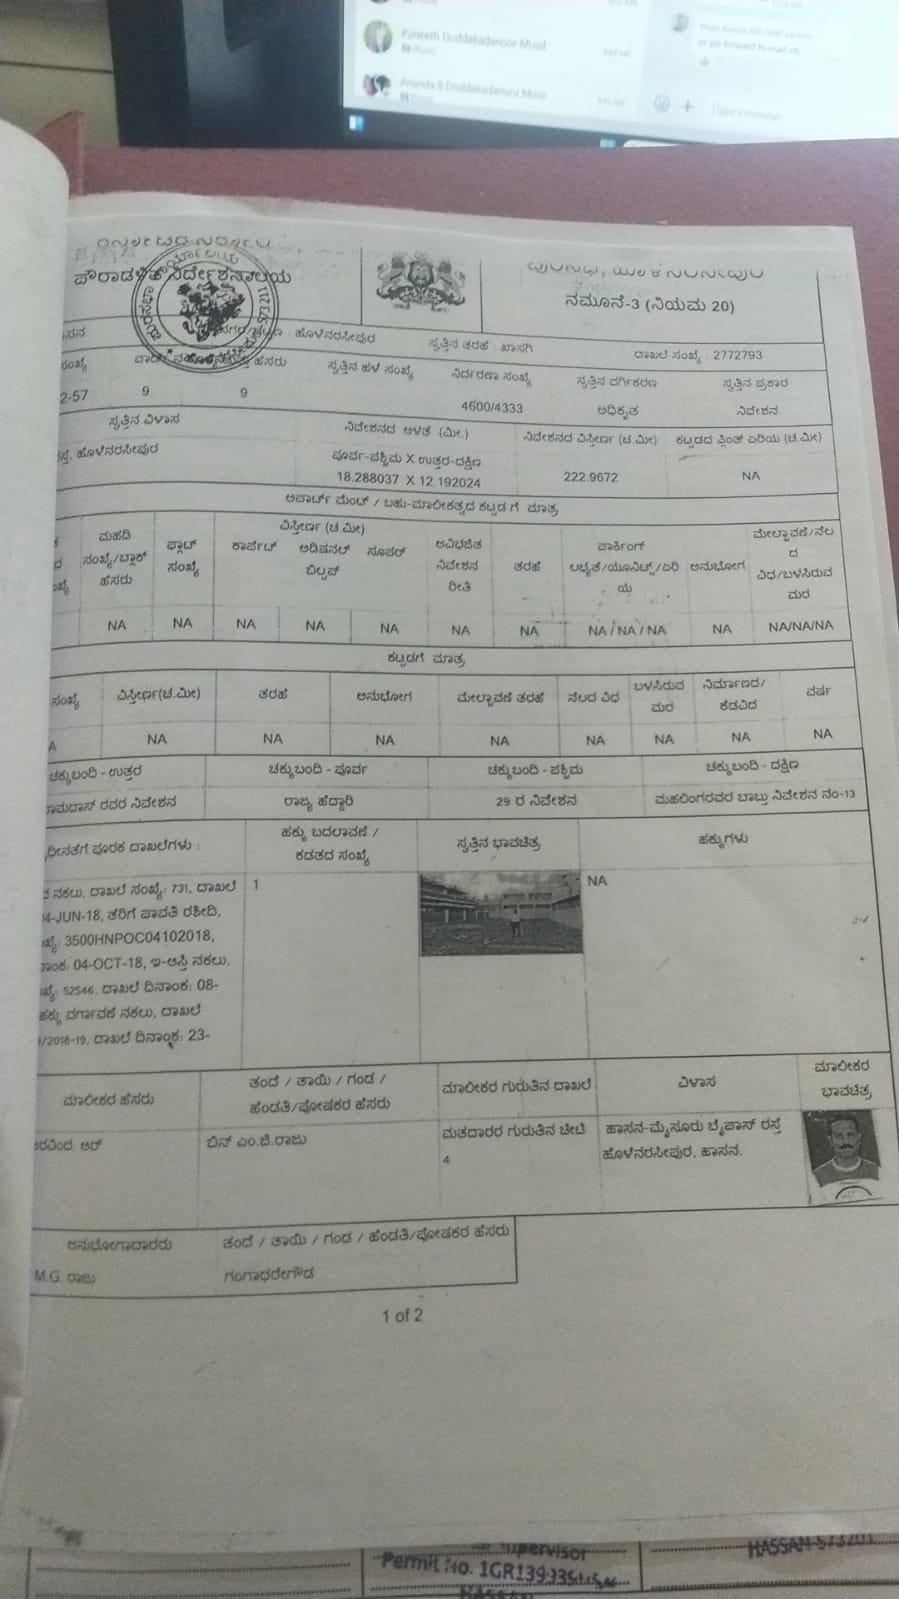 Puneeth Doddakadanoor Musd
Photo
Ananda B Doddakadanuru Musd
or pls forward to mail ids..
Type a message
ಪೌರಾಡಳಿತ ನಿರ್ದೇಶನಾಲಯ
ನಮೂನೆ-3 (ನಿಯಮ 20)
ಹೊಳೆನರಸೀಪುರ ಸ್ವತ್ತಿನ ತರಹ : ಖಾಸಗಿ ದಾಖಲೆ ಸಂಖ್ಯೆ : 2772793
ಸಂಖ್ಯೆ ಹೆಸರು ಸ್ವತ್ತಿನ ಹಳೆ ಸಂಖ್ಯೆ ನಿರ್ದರಣಾ ಸಂಖ್ಯೆ ಸ್ವತ್ತಿನ ವರ್ಗೀಕರಣ ಸ್ವತ್ತಿನ ಪ್ರಕಾರ
2-57 9 9 4600/4333 ಅಧಿಕೃತ ನಿವೇಶನ
ಸ್ವತ್ತಿನ ವಿಳಾಸ ನಿವೇಶನದ ಅಳತೆ (ಮೀ.) ನಿವೇಶನದ ವಿಸ್ತೀರ್ಣ (ಚ.ಮೀ) ಕಟ್ಟಡದ ಪ್ಲಿಂತ್ ಏರಿಯ (ಚ.ಮೀ)
ಹೊಳೆನರಸೀಪುರ ಪೂರ್ವ-ಪಶ್ಚಿಮ X ಉತ್ತರ-ದಕ್ಷಿಣ
18.288037 X 12.192024 222.9672 NA
ಅಪಾರ್ಟ್ ಮೆಂಟ್ / ಬಹು-ಮಾಲೀಕತ್ವದ ಕಟ್ಟಡ ಗೆ ಮಾತ್ರ
ಮಹಡಿ ಸಂಖ್ಯೆ/ಬ್ಲಾಕ್ ಹೆಸರು
ಫ್ಲಾಟ್ ಸಂಖ್ಯೆ
ವಿಸ್ತೀರ್ಣ (ಚ.ಮೀ)
ಕಾರ್ಪೆಟ್ ಅಡಿಷನಲ್ ಬಿಲ್ಟಪ್ ಸೂಪರ್
ಅವಿಭಜಿತ ನಿವೇಶನ ರೀತಿ
ತರಹ
ಪಾರ್ಕಿಂಗ್ ಲಭ್ಯತೆ/ಯೂನಿಟ್ಸ್/ಏರಿಯ
ಅನುಭೋಗ
ಮೇಲ್ಛಾವಣಿ/ನೆಲದ ವಿಧ/ಬಳಸಿರುವ ಮರ
NA NA NA NA NA NA NA NA / NA / NA NA NA/NA/NA
ಕಟ್ಟಡಗೆ ಮಾತ್ರ
ಸಂಖ್ಯೆ ವಿಸ್ತೀರ್ಣ(ಚ.ಮೀ) ತರಹೆ ಅನುಭೋಗ ಮೇಲ್ಛಾವಣಿ ತರಹೆ ನೆಲದ ವಿಧ ಬಳಸಿರುವ ಮರ ನಿರ್ಮಾಣದ/ಕೆಡವಿದ ವರ್ಷ
NA NA NA NA NA NA NA NA
ಚಕ್ಕುಬಂದಿ - ಉತ್ತರ ಚಕ್ಕುಬಂದಿ - ಪೂರ್ವ ಚಕ್ಕುಬಂದಿ - ಪಶ್ಚಿಮ ಚಕ್ಕುಬಂದಿ - ದಕ್ಷಿಣ
ರಾಮದಾಸ್ ರವರ ನಿವೇಶನ ರಾಜ್ಯ ಹೆದ್ದಾರಿ 29 ರ ನಿವೇಶನ ಮಹಲಿಂಗರವರ ಬಾಬ್ತು ನಿವೇಶನ ನಂ-13
ಪೂರಕ ದಾಖಲೆಗಳು : ಹಕ್ಕು ಬದಲಾವಣೆ / ಕಡತದ ಸಂಖ್ಯೆ ಸ್ವತ್ತಿನ ಭಾವಚಿತ್ರ ಹಕ್ಕುಗಳು
ನಕಲು, ದಾಖಲೆ ಸಂಖ್ಯೆ: 731, ದಾಖಲೆ 1 NA
04-JUN-18, ತೆರಿಗೆ ಪಾವತಿ ರಶೀದಿ,
3500HNPOC04102018,
04-OCT-18, ಇ-ಆಸ್ತಿ ನಕಲು,
52546, ದಾಖಲೆ ದಿನಾಂಕ: 08-
ಹಕ್ಕು ವರ್ಗಾವಣೆ ನಕಲು, ದಾಖಲೆ
/2018-19, ದಾಖಲೆ ದಿನಾಂಕ: 23-
ಮಾಲೀಕರ ಹೆಸರು ತಂದೆ / ತಾಯಿ / ಗಂಡ / ಹೆಂಡತಿ/ಪೋಷಕರ ಹೆಸರು ಮಾಲೀಕರ ಗುರುತಿನ ದಾಖಲೆ ವಿಳಾಸ ಮಾಲೀಕರ ಭಾವಚಿತ್ರ
ಅರವಿಂದ. ಆರ್ ಬಿನ್ ಎಂ.ಜಿ.ರಾಜು ಮತದಾರರ ಗುರುತಿನ ಚೀಟಿ ಹಾಸನ-ಮೈಸೂರು ಬೈಪಾಸ್ ರಸ್ತೆ
4 ಹೊಳೆನರಸೀಪುರ, ಹಾಸನ.
ಅನುಭೋಗದಾರರು ತಂದೆ / ತಾಯಿ / ಗಂಡ / ಹೆಂಡತಿ/ಪೋಷಕರ ಹೆಸರು
M.G. ರಾಜು ಗಂಗಾಧರೇಗೌಡ
1 of 2
Supervisor
HASSAN-573201
Permit No.
HASSAN